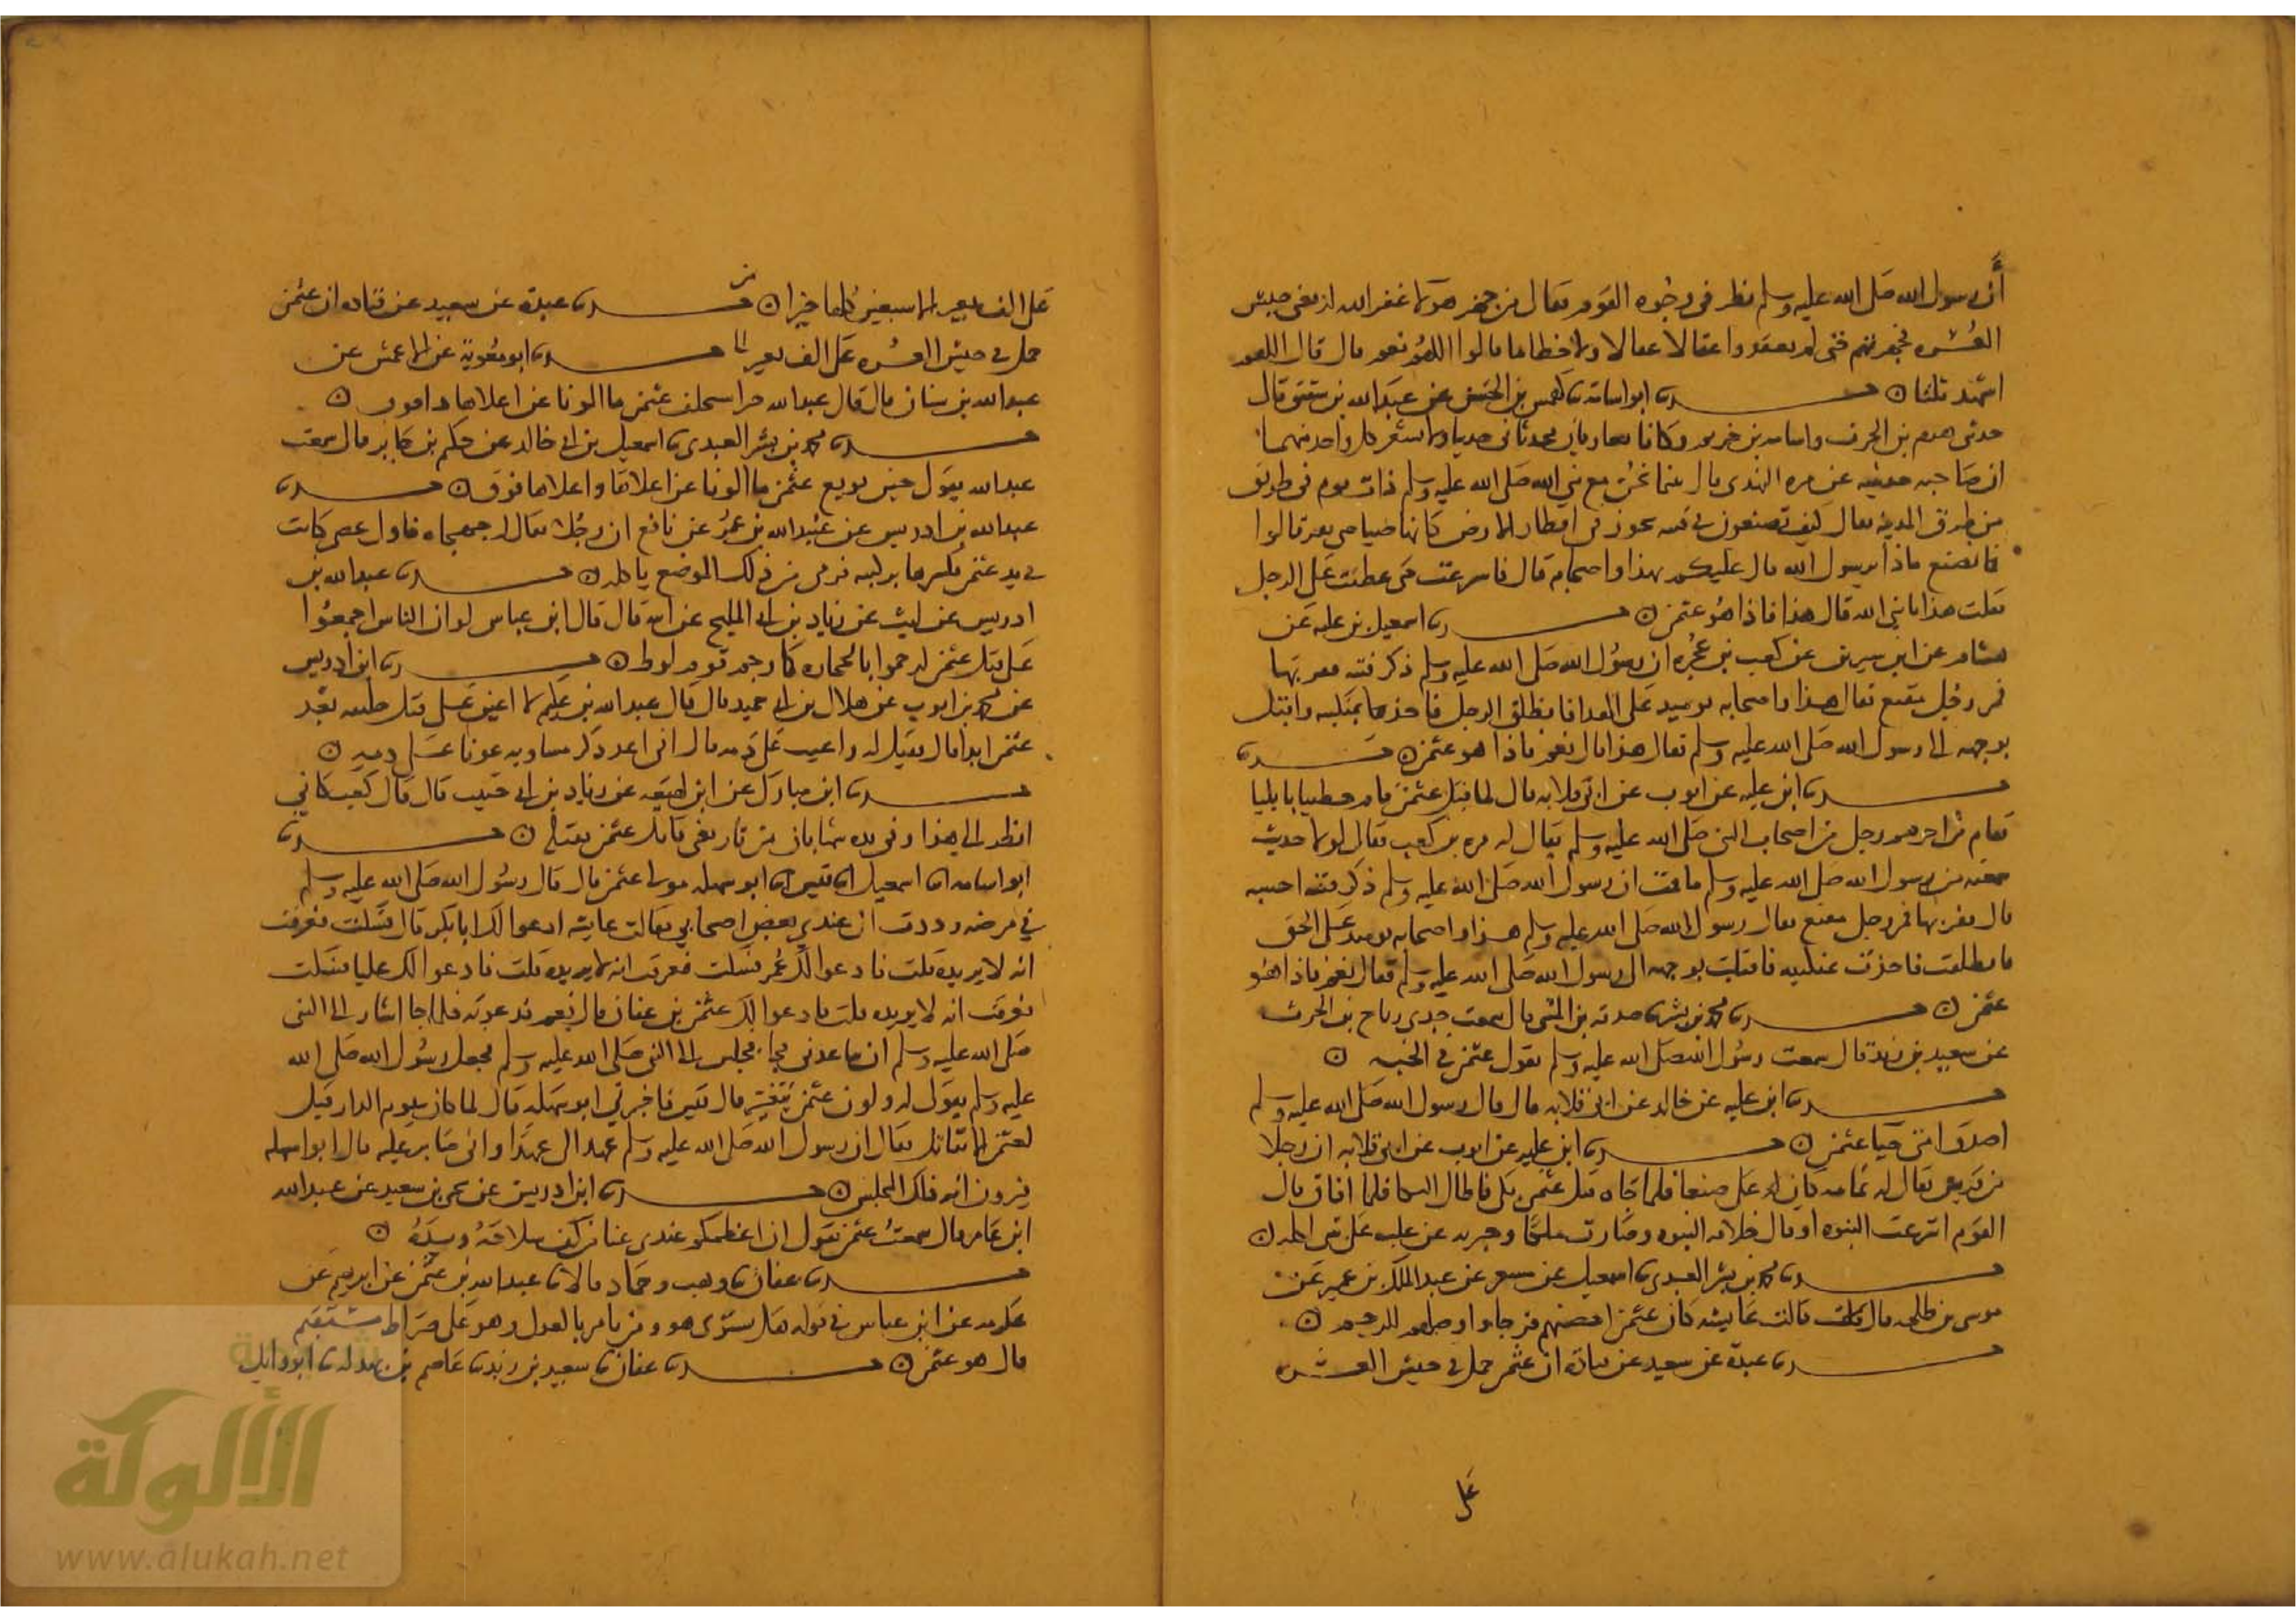 أن رسول الله صلى الله عليه وسلم نظر في وجوه القوم فقال من جهز هولا غفر الله له يعني جيش
العسره فجهزتهم حتى لم يفقدوا عقالا ولا خطاما قالوا اللهم نعم قال قال اللهم
اشهد ثلثا ن حدثنا ابو اسامة نا كهمس بن الحسن عن عبد الله بن شقيق قال
حدثني هرم بن الحرث واسامه بن خريم وكانا يغازيان يحدثاني حديثا ولا يشعر كل واحد منهما
ان صاحبه حدثنيه عن مره البهزي قال بينما نحن مع نبي الله صلى الله عليه وسلم ذات يوم في طريق
من طرق المدينه فقال كيف تصنعون في فتنه تثور في اقطار الارض كانها صياصي بقر قالوا
فانصنع ماذا يرسول الله قال عليكم بهذا واصحابه قال فاسرعت حتى عطفت على الرجل
فقلت هذا يا نبي الله قال هذا فاذا هو عثمن ن حدثنا اسمعيل بن عليه عن
هشام عن ابن سيرين عن كعب بن عجره ان رسول الله صلى الله عليه وسلم ذكر فتنه فقربها
فمر رجل مقنع فقال هذا واصحابه يوميد على الهدى فانطلق الرجل فاخذ بمنكبيه واقبل
بوجهه الى رسول الله صلى الله عليه وسلم فقال هذا قال نعم فاذا هو عثمن ن حدثنا
حدثنا ابن عليه عن ايوب عن ابي قلابه قال لما قتل عثمن قام خطبا بايليا
فقام من اخرهم رجل من اصحاب النبي صلى الله عليه وسلم يقال له مره بن كعب فقال لولا حديث
سمعته من رسول الله صلى الله عليه وسلم ما قمت ان رسول الله صلى الله عليه وسلم ذكر فتنه احسبه
قال فقربها فمر رجل مقنع فقال رسول الله صلى الله عليه وسلم هذا واصحابه يوميد على الحق
فانطلقت فاخذت بمنكبيه فاقبلت بوجهه الى رسول الله صلى الله عليه وسلم فقال نعم فاذا هو
عثمن ن حدثنا محمد بن بشر نا صدقه بن المثنى قال سمعت جدي رباح بن الحرث
عن سعيد بن زيد قال سمعت رسول الله صلى الله عليه وسلم يقول عثمن في الجنه ن
حدثنا ابن عليه عن خالد عن ابي قلابه قال قال رسول الله صلى الله عليه وسلم
اصدق امتي حيا عثمن ن حدثنا ابن عليه عن ايوب عن ابي قلابه ان رجلا
من قريش يقال له ثمامه كان على صنعا فلما جاه قتل عثمن بكى فاطال البكا فلما افاق قال
اليوم انتزعت النبوه او قال خلافه النبوه وصارت ملكا وجبريه من غلب على شي اكله ن
حدثنا محمد بن بشر العبدي نا اسمعيل عن مسعر عن عبد الملك بن عمير عن
موسى بن طلحه قال قالت عايشه كان عثمن احصنهم فرجا واوصلهم للرحم ن
حدثنا عبدة عن سعيد عن قتادة ان عثمن حمل في جيش العسره
على
على الف بعير الا سبعين كملها خيلا ن حدثنا عبدة عن سعيد عن قتاده ان عثمن
حمل في جيش العسره على الف بعير الا حدثنا ابو معوية عن الاعمش عن
عبد الله بن سنان قال قال عبد الله حين استخلف عثمن ما الونا عن اعلاها ذا فوق ن
حدثنا محمد بن بشر العبدي نا اسمعيل بن ابي خالد عن حكيم بن جابر قال سمعت
عبد الله يقول حين بويع عثمن ما الونا عن اعلاها واعلاها فوق ن حدثنا
عبد الله بن ادريس عن عبيد الله بن عمر عن نافع ان رجلا يقال له جهجاه تناول عصى كانت
في يد عثمن فكسرها بركبته فرمي من ذلك الموضع باكله ن حدثنا عبد الله بن
ادريس عن ليث عن زياد بن ابي المليح عن ابيه قال قال ابن عباس لو ان الناس اجمعوا
على قتل عثمن لرجموا بالحجاره كما رجم قوم لوط ن حدثنا ابن ادريس
عن محمد بن ايوب عن هلال بن ابي حميد قال قال عبد الله بن عكيم لا اعين على قتل خليفه بعد
عثمن ابدا قال فقيل له واعنت على دمه قال اني اعد ذكر مساويه عونا على دمه ن
حدثنا ابن مبارك عن ابن لهيعه عن زياد بن ابي حبيب قال قال كعب كاني
انظر الى هذا وفي يده شهابان من نار يعني قاتل عثمن فقتله ن حدثنا
ابو اسامه نا اسمعيل انا قيس انا ابو سهله مولى عثمن قال قال رسول الله صلى الله عليه وسلم
في مرضه وددت ان عندي بعض اصحابي فقالت عايشه ادعو لك ابا بكر قال فسكت فعرفت
انه لا يريده قلت فادعو لك عمر فسكت فعرفت انه لا يريده قلت فادعو لك عليا فسكت
فعرفت انه لا يريده قلت فادعو لك عثمن بن عفان قال نعم فدعوته فلما جا اشار الى النبي
صلى الله عليه وسلم ان تباعدي فجا فجلس الى النبي صلى الله عليه وسلم فجعل رسول الله صلى الله
عليه وسلم يقول له ولون عثمن يتغير قال قيس فاخبرني ابو سهله قال لما كان يوم الدار قيل
لعثمن الا تقاتل فقال ان رسول الله صلى الله عليه وسلم عهد الي عهدا واني صابر عليه قال ابو سهله
فيرون انه ذلك المجلس ن حدثنا ابن ادريس عن يحيى بن سعيد عن عبد الله
ابن عامر قال سمعت عثمن يقول ان اعظمكم عندي غنا من كف سلاحه ويده ن
حدثنا عفان نا وهيب وحماد قالا نا عبد الله بن عثمن عن ابرهيم عن
عكرمه عن ابن عباس في قوله هل يستوى هو ومن يامر بالعدل وهو على صراط مستقيم
قال هو عثمن ن حدثنا عفان نا سعيد بن زيد نا عاصم بن بهدله نا ابو وايل
الألوكة
www.alukah.net